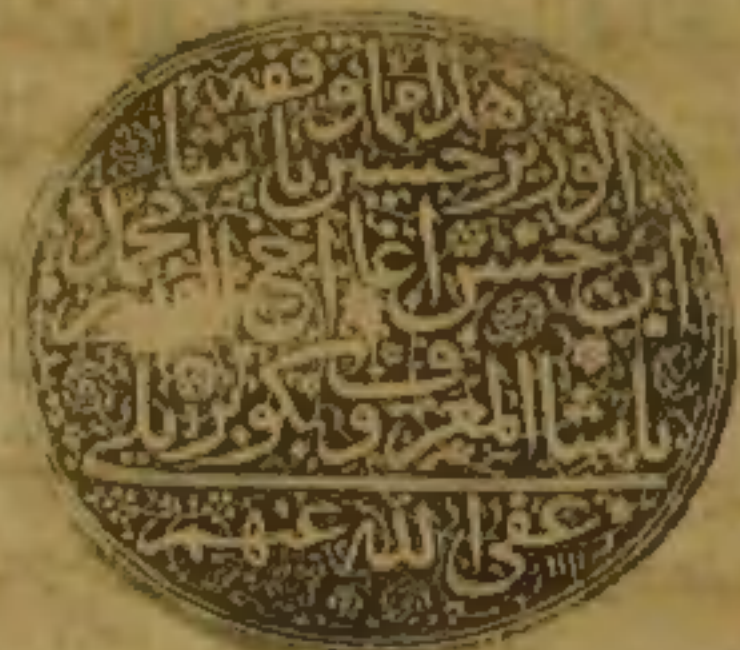 هذا مما وقفه
الوزير حسين پاشا
ابن حسن اغا اخ محمد
پاشا المعروف بكوپريلي
عفى الله عنهم